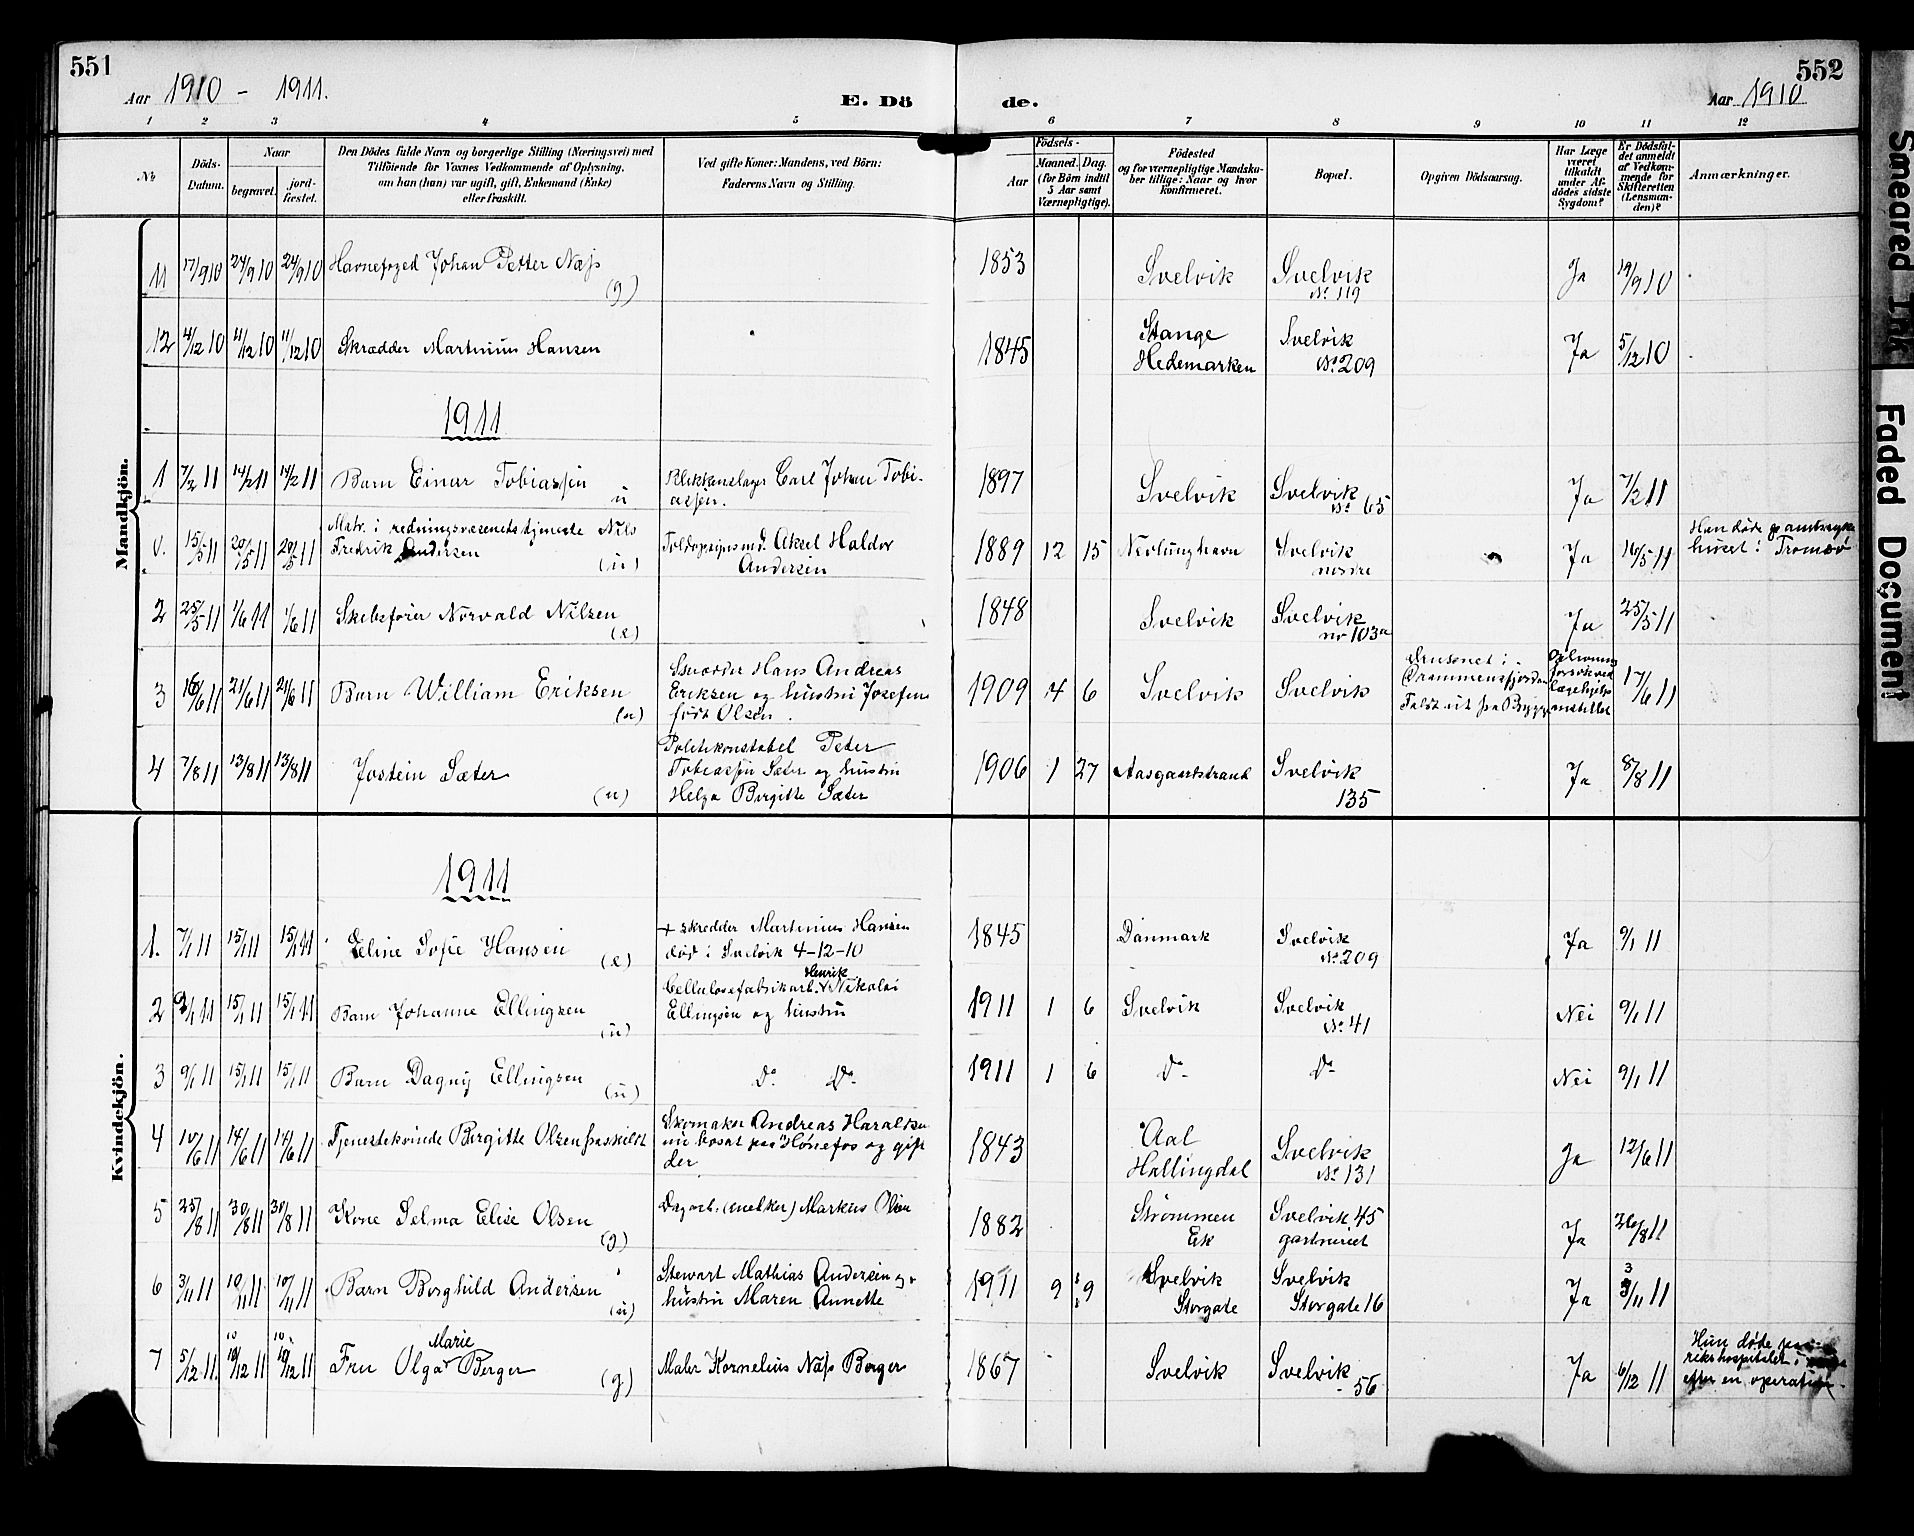 551
Aar 1910 - 1911.
E. Dö
1 2 3 4 5
№
Döds-Datum.
Naar
begravet.
jord-fæstet.
Den Dödes fulde Navn og borgerlige Stilling (Næringsvei) med
Tilföiende for Voxnes Vedkommende af Oplysning,
om han (hun) var ugift, gift, Enkemand (Enke)
eller fraskilt.
Ved gifte Koner: Mandens, ved Börn:
Faderens Navn og Stilling.
de.
552
Aar 1910
6 7 8 9 10 11 12
Födsels-
Aar
Maaned. Dag.
(for Börn indtil
5 Aar samt
Værnepligtige).
Födested
og for værnepligtige Mandska-
ber tillige: Naar og hvor
konfirmeret.
Bopæl.
Opgiven Dödsaarsag.
Har Læge
været
tilkaldt
under Af-
dödes sidste
Sygdom?
Er Dödsfal-
det anmeldt
af Vedkom-
mende for
Skifteretten
(Lensman-
den)?
Anmærkninger.
Mandkjön.
11 17/9 10 24/9 10 24/9 10 Havnefoged Johan Petter Næss (g) 1853 Svelvik Svelvik № 119 Ja 19/9 10
12 4/12 10 11/12 10 11/12 10 Skrædder Martinius Hansen 1845 Stange Hedemarken Svelvik № 209 Ja 5/12 10
1911
1 7/2 11 14/2 11 14/2 11 Barn Einar Tobiassen u Blikkenslager Carl Johan Tobi-
assen. 1897 Svelvik Svelvik № 65 Ja 7/2 11
15/5 11 20/5 11 20/5 11 Matr. i redningsvæsenets tjeneste Nils
Fredrik Andersen (u) Toldopsynsmd. Aksel Haldor
Andersen 1889 12 15 Nevlunghavn Svelvik nordre Ja 16/5 11 Han døde
huset i Tromsø
2 25/5 11 1/6 11 1/6 11 Skibsfører Norvald Nilsen (e) 1848 Svelvik Svelvik nr 103a Ja 25/5 11
3 16/6 11 21/6 11 21/6 11 Barn William Eriksen (u) Skrædder Hans Andreas
Eriksen og hustru Josefine
født Olsen. 1909 4 6 Svelvik Svelvik Druknet i
Drammensfjorden
Faldt ut fra Brygge 17/6 11
4 7/8 11 13/8 11 13/8 11 Jostein Sæter (u) Politikonstabel Peter
Tobiassen Sæter og hustru
Helga Birgitte Sæter 1906 1 27 Aasgaardstrand Svelvik 135 Ja 8/8 11
Kvindekjön.
1911
1. 7/1 11 15/1 11 15/1 11 Eline Sofie Hansen (e) + skredder Martinius Hansen
død i Svelvik 4-12-10 1845 Danmark Svelvik № 209 Ja 9/1 11
2 9/1 11 15/1 11 15/1 11 Barn Johanne Ellingsen (u) Cellulosefabrikarb. Henrik Nikolai
Ellingsen og hustru 1911 1 6 Svelvik Svelvik № 41 Nei 9/1 11
3 9/1 11 15/1 11 15/1 11 Barn Dagny Ellingsen (u) Do. Do. 1911 1 6 Do Do Nei 9/1 11
4 10/6 11 14/6 11 14/6 11 Tjenestekvinde Birgitte Olsen fraskildt Skomaker Andreas Haraldsen
nu bosat paa Hønefos og gift
der 1843 Aal Hallingdal Svelvik № 131 Ja 12/6 11
5 25/8 11 30/8 11 30/8 11 Kone Selma Elise Olsen (g) Dagarb. (snekker) Markus Olsen 1882 Strømmen Ek Svelvik 45 Ja 26/8 11
6 3/11 11 10/11 11 10/11 11 Barn Borghild Andersen (u) Stewart Mathias Andersen og
hustru Maren Annette 1911 9 9 Svelvik Storgate Svelvik Storgate 16 Ja 3/11 11
7 5/12 11. 10/12 11 10/12 11 Fru Olga Marie Berger (g) Maler Kornelius Næss Berger 1867 Svelvik Svelvik 56 Ja 6/12 11 Hun døde paa
rikshospitalet i
efter en operation.
Smeared Ink
Faded Document